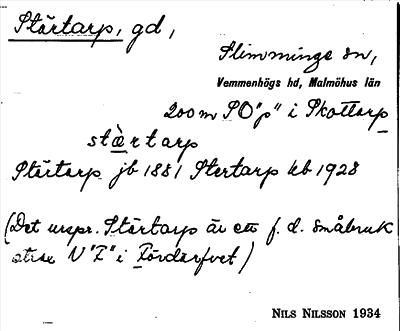 Stärtarp, gd,
Slimminge sn,
Vemmenhögs hd, Malmöhus län
200 m SO "p" i Skottarp
stä̀rtarp
Stärtarp jb 1881 Stertarp kb 1928
(Det urspr. Stärtarp är ett f. d. småbruk
strax N "F" i Fördärfvet)
NILS NILSSON 1934